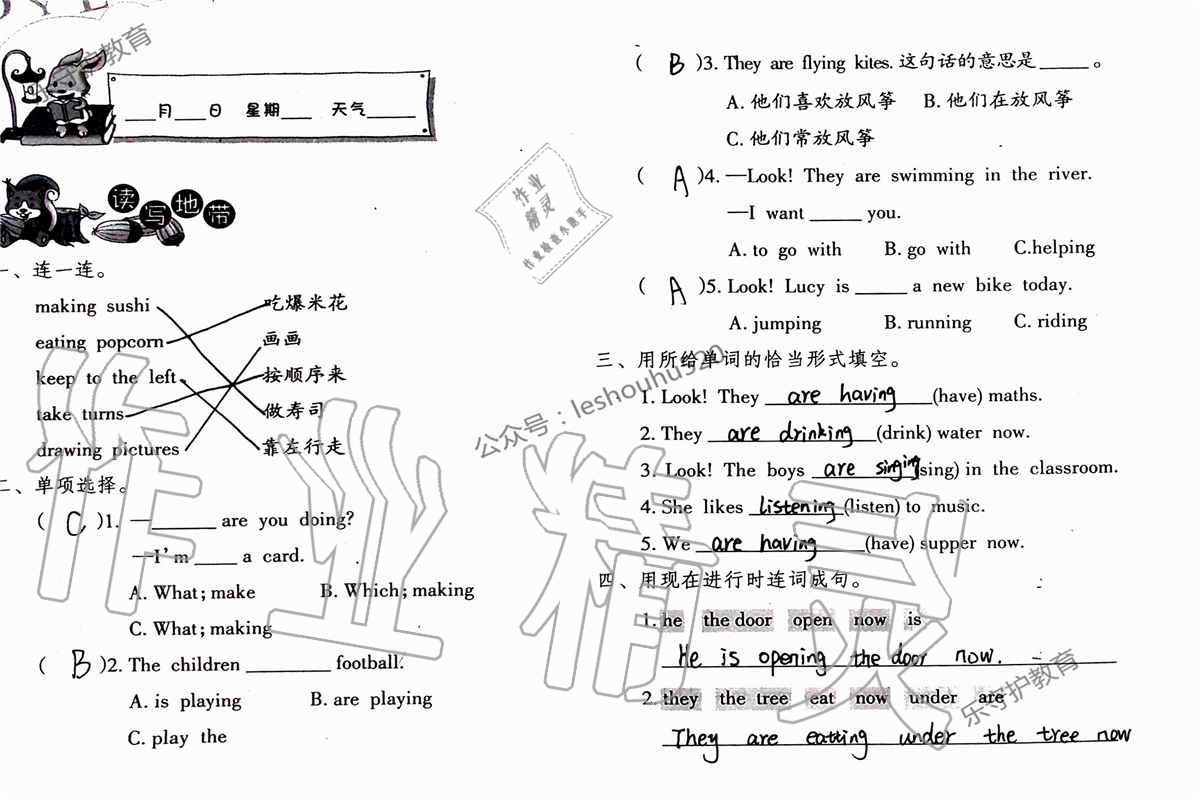 乐守护教育
___月___日 星期___ 天气_____
读写地带
一、连一连。
making sushi 吃爆米花
eating popcorn 画画
keep to the left 按顺序来
take turns 做寿司
drawing pictures 靠左行走
二、单项选择。
( C )1. —______ are you doing?
—I'm ____ a card.
A. What; make B. Which; making
C. What; making
( B )2. The children ________ football.
A. is playing B. are playing
C. play the
( B )3. They are flying kites. 这句话的意思是_____。
A. 他们喜欢放风筝 B. 他们在放风筝
C. 他们常放风筝
( A )4. —Look! They are swimming in the river.
—I want _____ you.
A. to go with B. go with C.helping
( A )5. Look! Lucy is _____ a new bike today.
A. jumping B. running C. riding
三、用所给单词的恰当形式填空。
1. Look! They are having (have) maths.
2. They are drinking (drink) water now.
3. Look! The boys are singing (sing) in the classroom.
4. She likes listening (listen) to music.
5. We are having (have) supper now.
四、用现在进行时连词成句。
1. he the door open now is
He is opening the door now.
2. they the tree eat now under are
They are eatting under the tree now
作业精灵
作业检查小助手
公众号：leshouhu520
作业精灵
乐守护教育